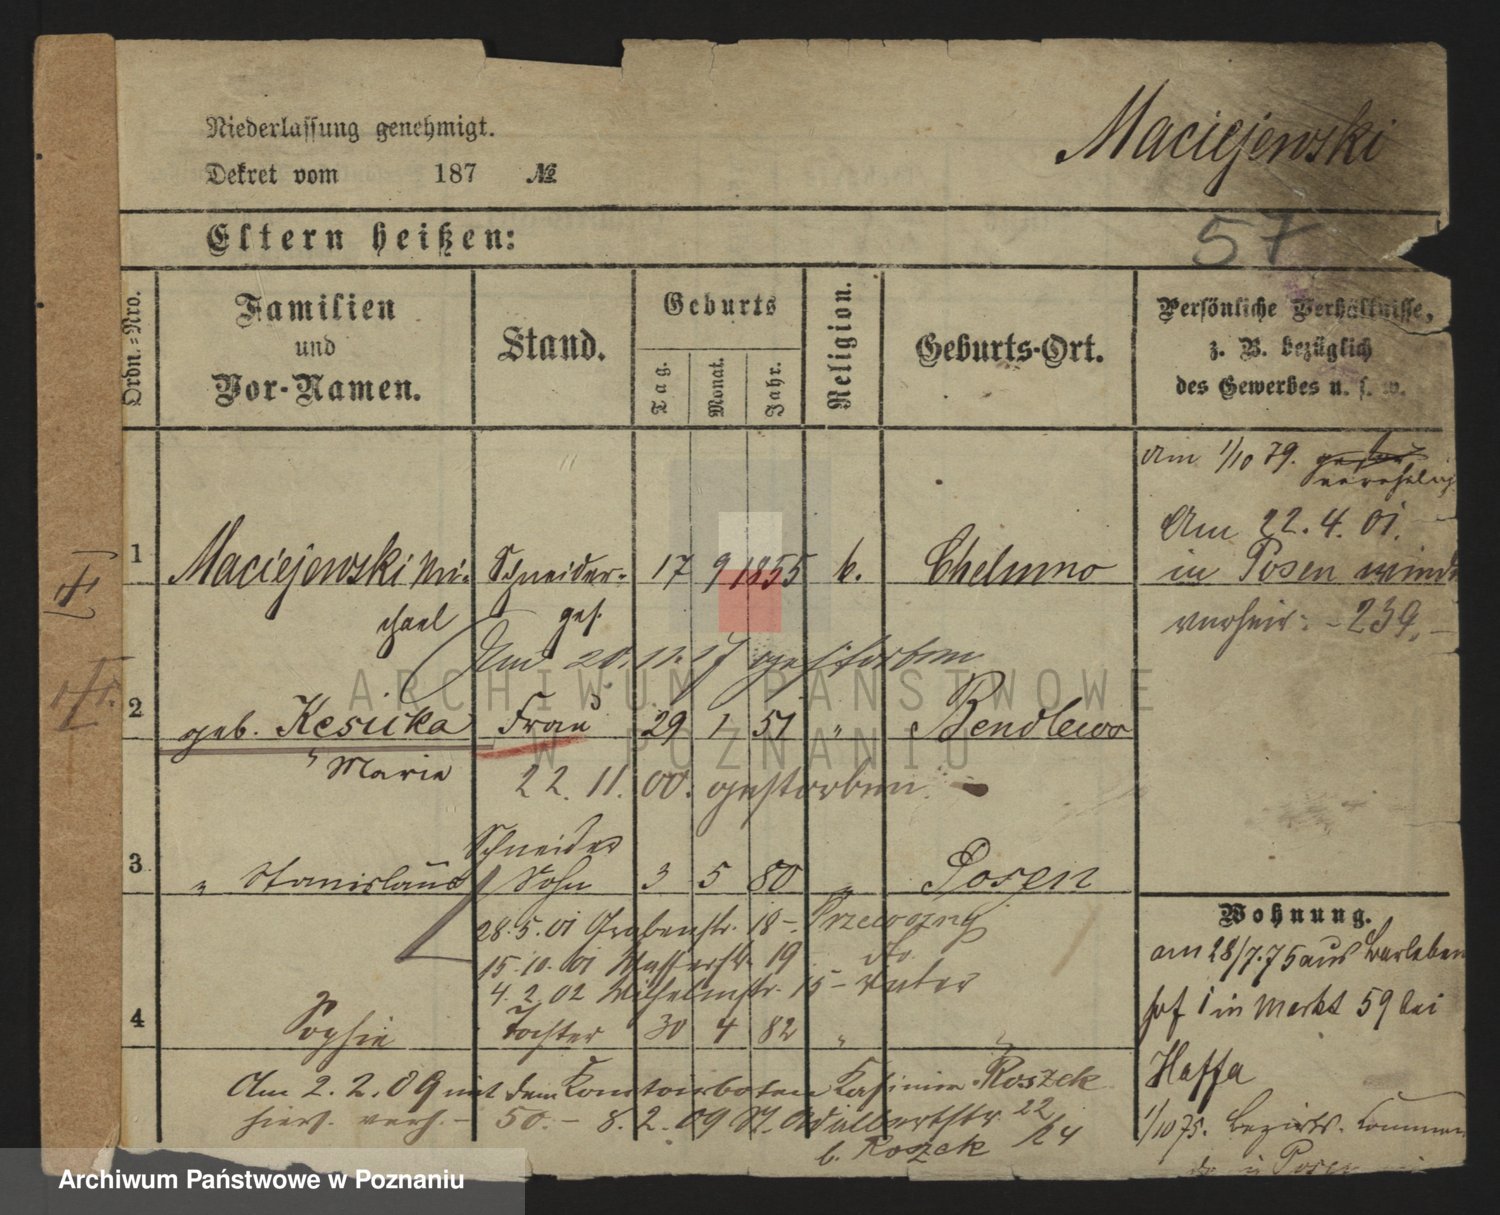 Niederlassung genehmigt.
Dekret vom 187 №
Maciejewski
57
Eltern heißen:
Ordn.-Nro.
Familien
und
Vor-Namen.
Stand.
Geburts
Tag.
Monat.
Jahr.
Religion.
Geburts-Ort.
Persönliche Verhältnisse,
z. B. bezüglich
des Gewerbes u. s. w.
am 1/10 79.
verehelig
Am 22.4.01.
1 Maciejewski Mi- Schneider- 17 9 1855 k. Chelmno in Posen wieder
chael ges. verheir: - 239,-
Am 20.11.17 gestorben
2 geb. Kesicka Frau 29 1 51 " Bendlewo
" Marie
22. 11. 00. gestorben.
Schneider
3 " Stanislaus Sohn 3 5 80 " Posen
Wohnung.
28.5.01 Grabenstr. 18 - Przewozny
am 28/7.75 aus Barleben
15.10.01 Wasserstr. 19 do
4.2.02 Wilhelmstr. 15 - Vater
hof 1 in Markt 59 bei
4 Sophie Tochter 30 4 82 " "
Haffa
Am 2.2.09 mit dem Kontoirboten Kasimir Roszek
hiers. verh. - 50. - 8.2.09 St. Adalbertstr. 22/24
1/10 75. Bezirks-Comman
b. Rozek
do in Posen
ARCHIWUM PAŃSTWOWE
W POZNANIU
Archiwum Państwowe w Poznaniu